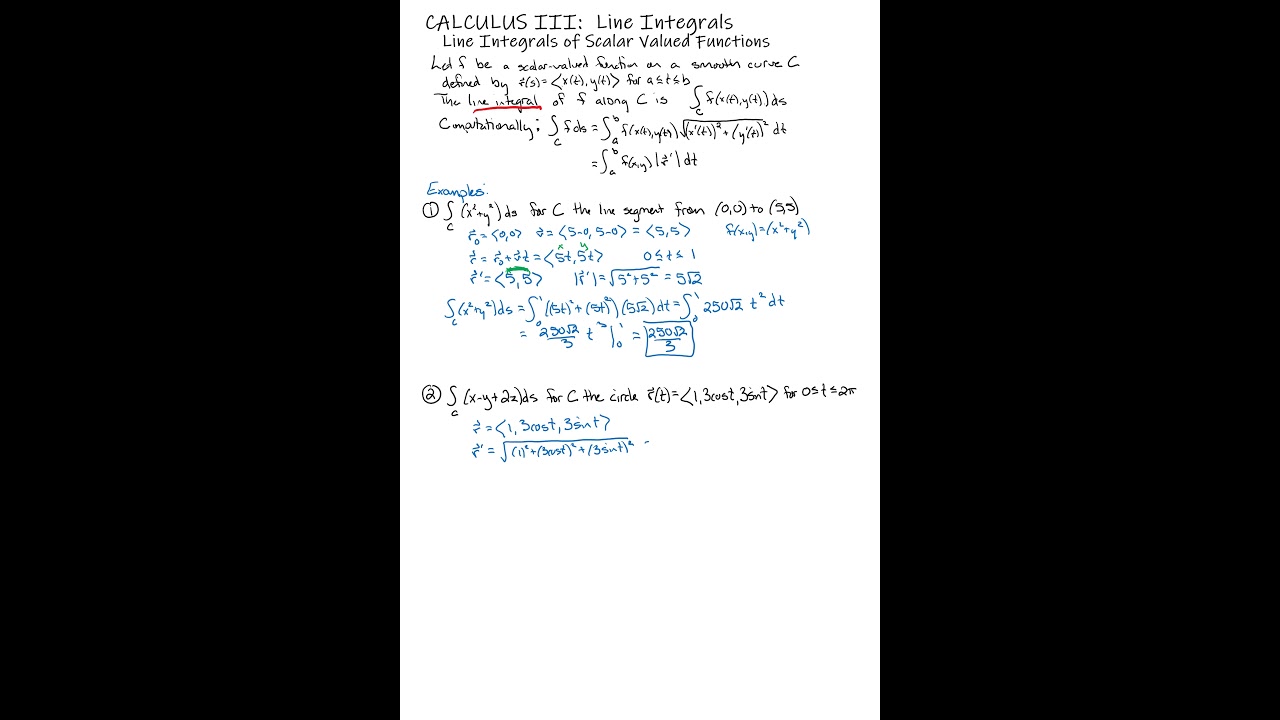 CALCULUS III: Line Integrals
Line Integrals of Scalar Valued Functions
Let f be a scalar-valued function on a smooth curve C
defined by r⃗(s) = ⟨x(t), y(t)⟩ for a ≤ t ≤ b
The line integral of f along C is ∫_C f(x(t), y(t)) ds
Computationally: ∫_C f ds = ∫_a^b f(x(t), y(t)) √((x'(t))² + (y'(t))²) dt
= ∫_a^b f(x,y) |r⃗'| dt
Examples:
① ∫_C (x²+y²) ds for C the line segment from (0,0) to (5,5)
r⃗₀ = ⟨0,0⟩ v⃗ = ⟨5-0, 5-0⟩ = ⟨5,5⟩ f(x,y) = (x²+y²)
x y
r⃗ = r⃗₀ + v⃗t = ⟨5t, 5t⟩ 0 ≤ t ≤ 1
r⃗' = ⟨5,5⟩ |r⃗'| = √(5²+5²) = 5√2
∫_C (x²+y²) ds = ∫_0^1 ((5t)² + (5t)²) (5√2) dt = ∫_0^1 250√2 t² dt
= 250√2/3 t³ |_0^1 = 250√2/3
② ∫_C (x-y+2z) ds for C the circle r⃗(t) = ⟨1, 3cost, 3sint⟩ for 0 ≤ t ≤ 2π
r⃗ = ⟨1, 3cost, 3sint⟩
r⃗' = √((1)² + (3cost)² + (3sint)²) -